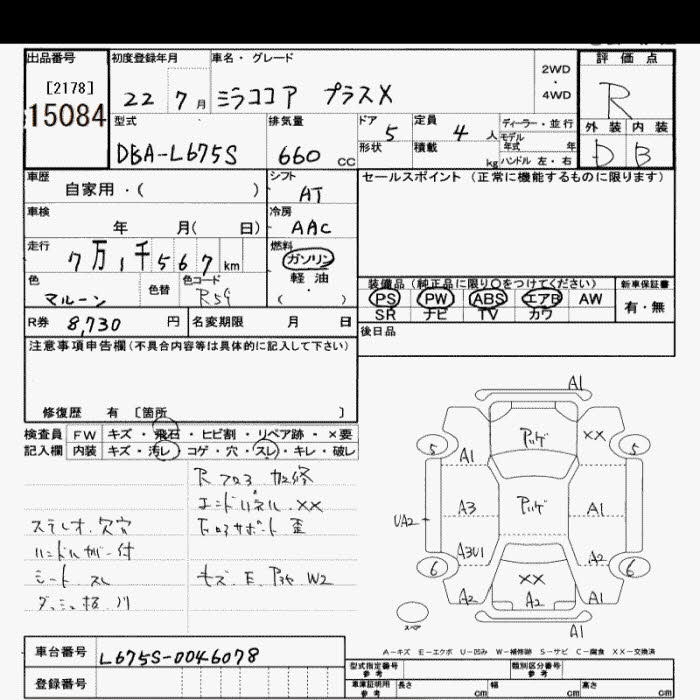 出品番号 初度登録年月 車名・グレード 2WD・4WD 評価点
[2178]
15084
22 7月 ミラココア プラスX R
型式 排気量 ドア 定員 ディーラー・並行 外装 内装
DBA-L675S 660 CC 5 4人 モデル年式 年 D B
形状 積載 kg ハンドル 左・右
車歴 シフト セールスポイント (正常に機能するものに限ります)
自家用・( ) AT
車検 冷房
年 月( 日) AAC
走行 燃料
7万1千567km ガソリン
軽油
色 色替 色コード
マルーン R59 ( ・ )
装備品 (純正品に限り○をつけてください) 新車保証書
PS PW ABS エアB AW 有・無
SR ナビ TV カワ
R券 8,730 円 名変期限 月 日 後日品
注意事項申告欄(不具合内容等は具体的に記入して下さい)
修復歴 有 [箇所 ]
検査員 FW キズ・飛石・ヒビ割・リペア跡・×要
記入欄 内装 キズ・汚レ・コゲ・穴・スレ・キレ・破レ
Rフロア 加修
エンドパネル ××
ステレオ欠穴 コアサポート 歪
ハンドルカバー付
シート スレ キズ・E P36 W2
A1
××
5 5
A1
A3 A1
UA2
A3U1 A2
6 ×× 6
A2 A2 A1
A1
スペア
A-キズ E-エクボ U-凹み W-補修跡 S-サビ C-腐食 XX-交換済
車台番号 L675S-0046078
型式指定番号 参考 類別区分番号 参考
登録番号 車庫証明用 参考 長さ cm 幅 cm 高さ cm